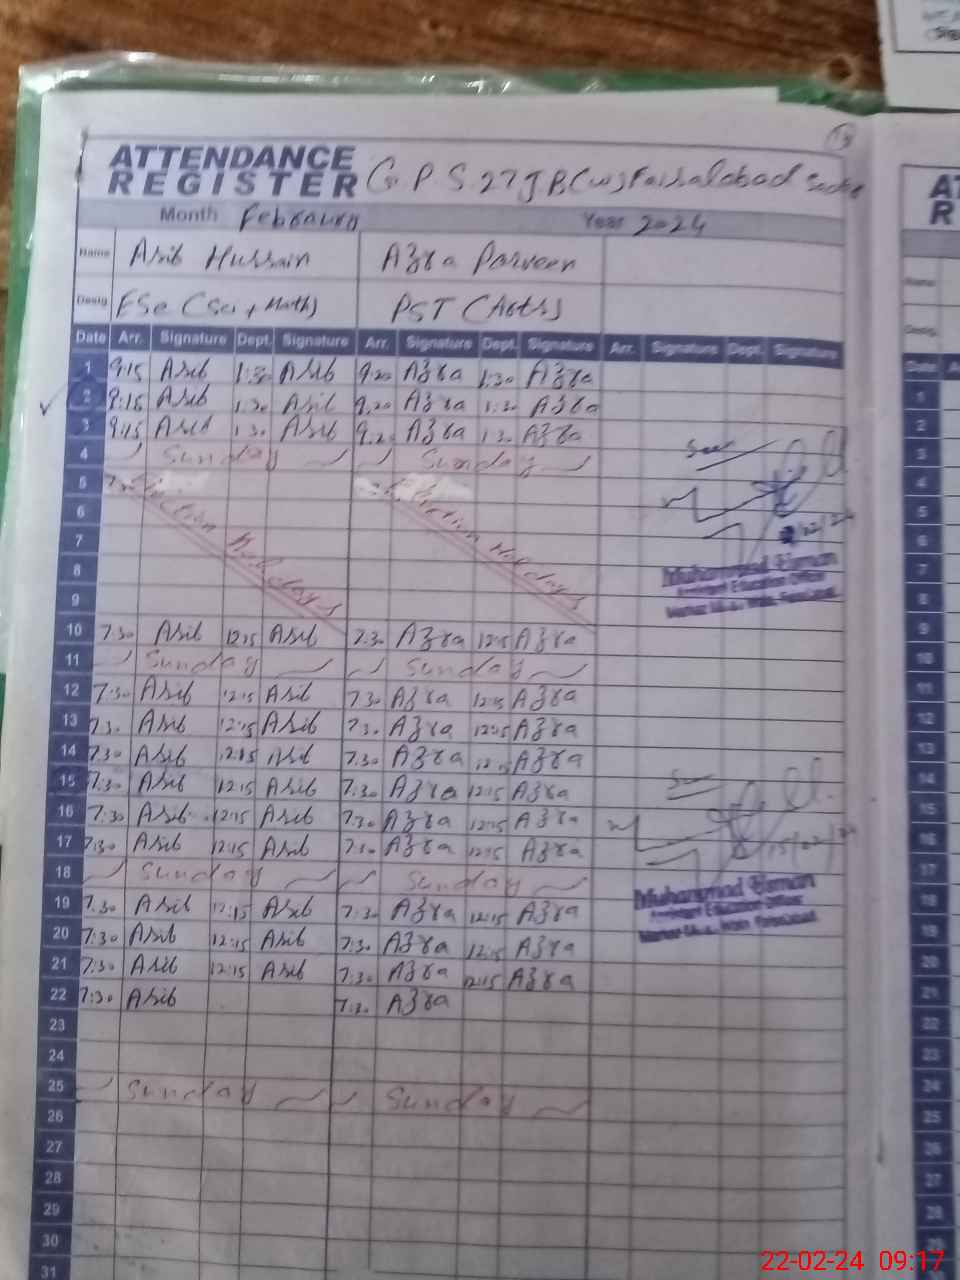 13
ATTENDANCE
REGISTER G.P.S.27JB(w) Faisalabad Sadar
Month Februaury Year 2024
Name Asib Hussain Azra Parveen
Desig. ESe (Sci + Math) PST (Arts)
Date Arr. Signature Dept. Signature Arr. Signature Dept. Signature Arr. Signature Dept. Signature
1 9:15 Asib 1:30 Asib 9.20 Azra 1:30 Azra
2 9:15 Asib 1:30 Asib 9.20 Azra 1:30 Azra
3 9:15 Asib 1 30 Asib 9.20 Azra 1 30 Azra
4 Sunday Sunday
5
6 Election Holidays Election Holidays
7
8
9
Muhammad Usman
Assistant Education Officer
10 7.30 Asib 12:15 Asib 7:30 Azra 12:15 Azra
11 Sunday Sunday
12 7:30 Asib 12:15 Asib 7.30 Azra 12:15 Azra
13 7:30 Asib 12:15 Asib 7:30 Azra 12:15 Azra
14 7:30 Asib 12:15 Asib 7:30 Azra 12:15 Azra
15 7:30 Asib 12:15 Asib 7:30 Azra 12:15 Azra
16 7:30 Asib 12:15 Asib 7:30 Azra 12:15 Azra
17 7:30 Asib 12:15 Asib 7:30 Azra 12:15 Azra
15/02/24
18 Sunday Sunday
Muhammad Usman
Assistant Education Officer
19 7.30 Asib 12:15 Asib 7:30 Azra 12:15 Azra
20 7:30 Asib 12:15 Asib 7:30 Azra 12:15 Azra
21 7:30 Asib 12:15 Asib 7:30 Azra 12:15 Azra
22 7:30 Asib 7:30 Azra
23
24
25 Sunday Sunday
26
27
28
29
30
31
22-02-24 09:17